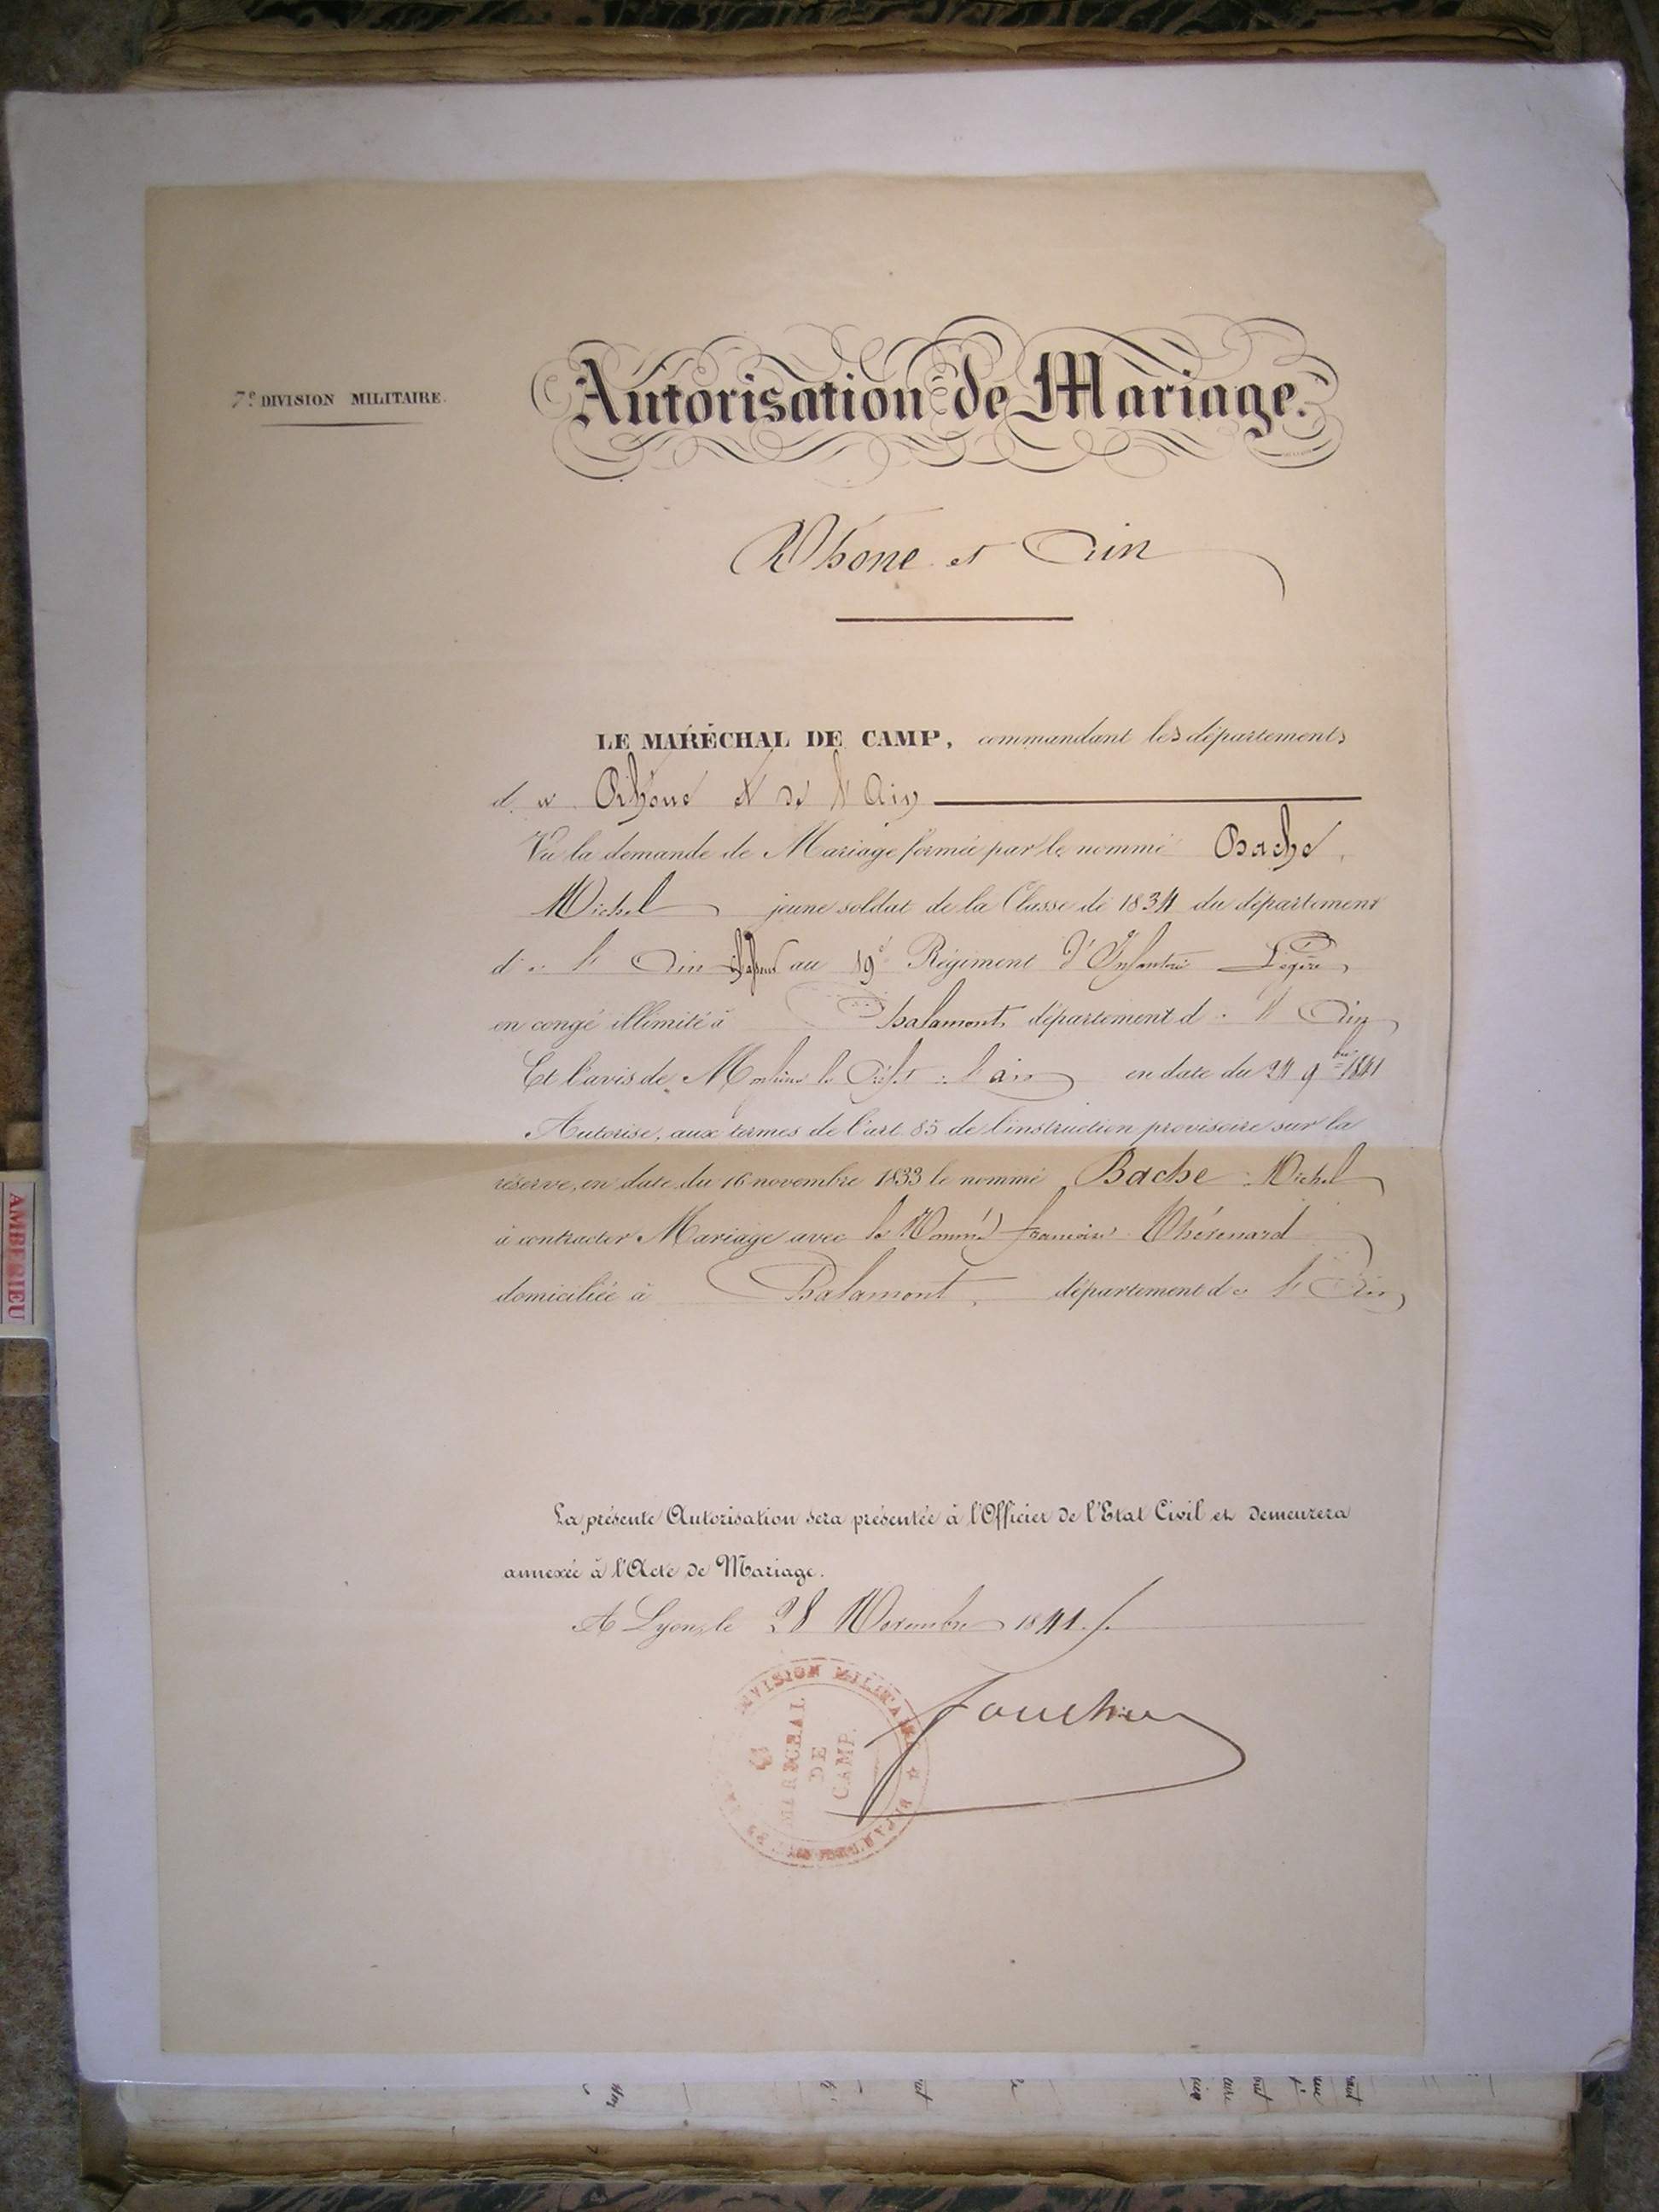 7e DIVISION MILITAIRE.
Autorisation de Mariage.
Rhône et Ain
LE MARÉCHAL DE CAMP, commandant les départements
du Rhône et de l'Ain
Vu la demande de Mariage formée par le nommé Bache
Michel jeune soldat de la Classe de 1834 du département
de l'Ain au 19e Régiment d'Infanterie Légère
en congé illimité à Chalamont département de l'Ain
Et l'avis de Monsieur le Préfet de l'ain en date du 24 9bre 1841
Autorise, aux termes de l'art. 85 de l'instruction provisoire sur la
réserve, en date du 16 novembre 1833 le nommé Bache Michel
à contracter Mariage avec la Nommée françoise Thévenard
domiciliée à Chalamont, département de l'Ain
La présente Autorisation sera présentée à l'Officier de l'Etat Civil et demeurera
annexée à l'Acte de Mariage.
A Lyon, le 28 Novembre 1841
DIVISION MILITAIRE
MARÉCHAL
DE
CAMP.
AMBERIEU